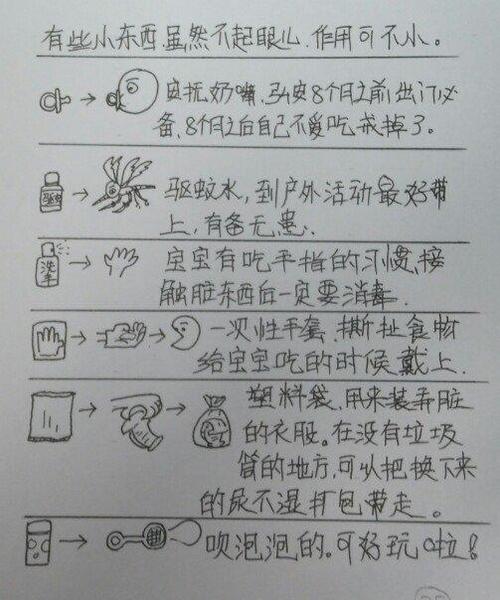 有些小东西,虽然不起眼儿,作用可不小。
安抚奶嘴,弘安8个月之前出门必
备,8个月之后自己不爱吃,戒掉了。
驱蚊
驱蚊水,到户外活动最好带
上,有备无患.
洗手
宝宝有吃手指的习惯,接
触脏东西后一定要消毒.
一次性手套,撕扯食物
给宝宝吃的时候戴上.
塑料袋,用来装弄脏
的衣服。在没有垃圾
筒的地方,可以把换下来
的尿不湿打包带走。
吹泡泡的。可好玩啦!